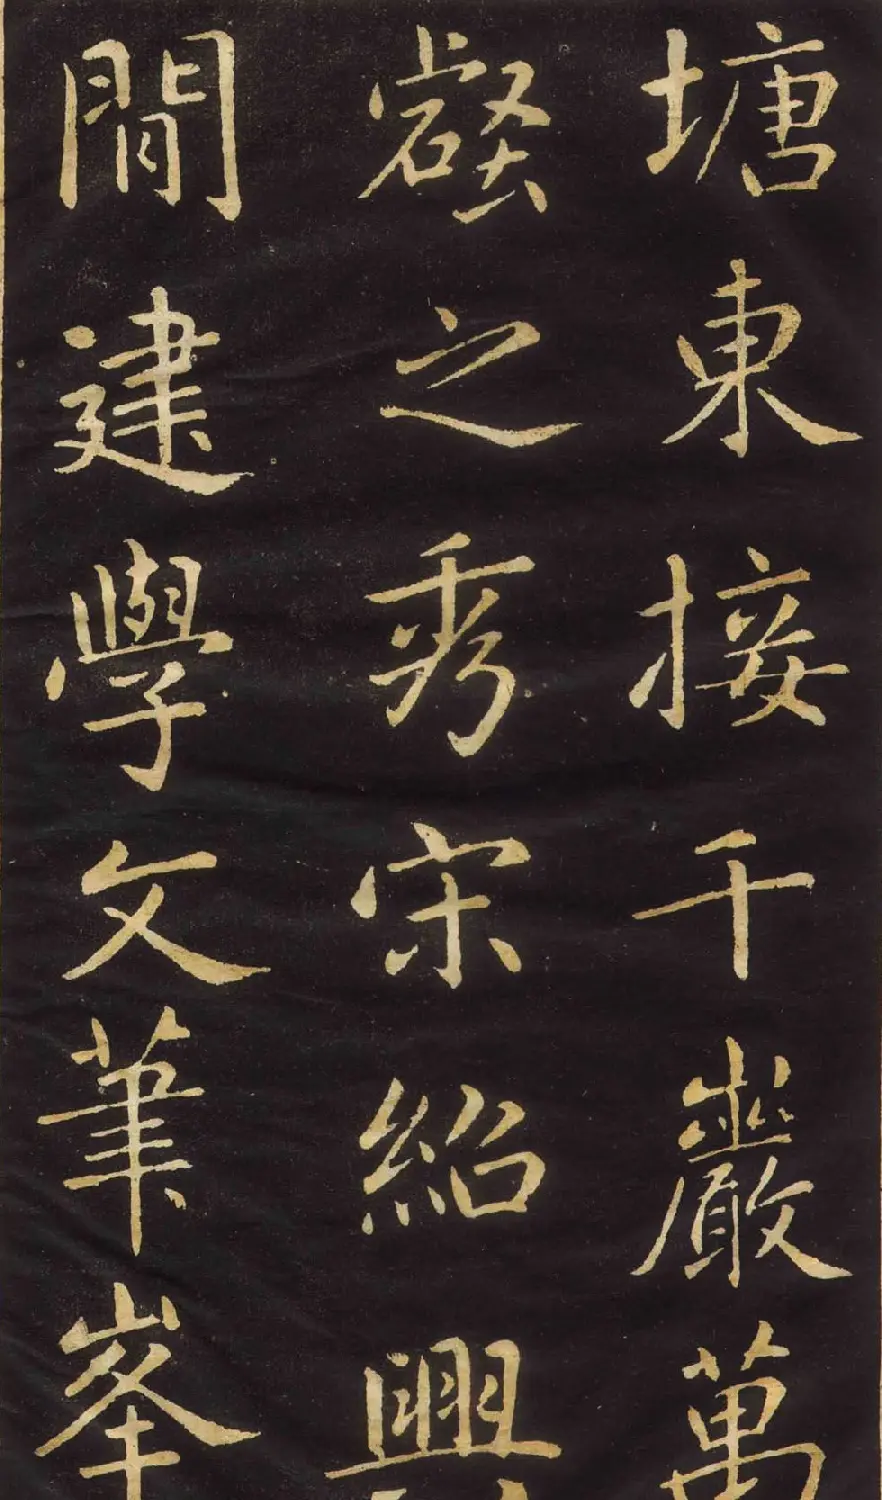 塘東接千巖萬
壑之秀宋紹興
間建學文筆峯